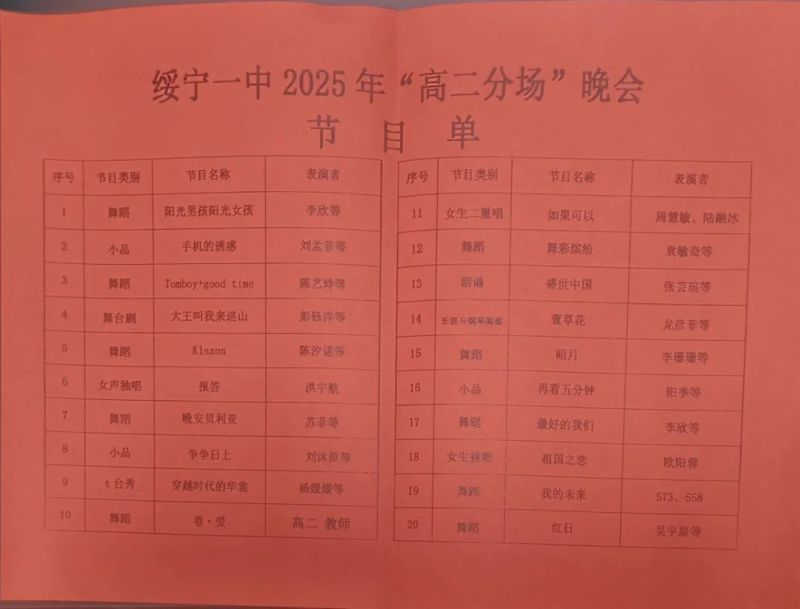 绥宁一中 2025 年“高二分场”晚会
节 目 单
序号 节目类别 节目名称 表演者
1 舞蹈 阳光男孩阳光女孩 李欣等
2 小品 手机的诱惑 刘孟菲等
3 舞蹈 Tomboy+good time 陈艺玲等
4 舞台剧 大王叫我来巡山 彭钰洋等
5 舞蹈 Klaxon 陈汐诺等
6 女声独唱 报答 洪宇航
7 舞蹈 晚安贝利亚 苏菲等
8 小品 争争日上 刘沐原等
9 t台秀 穿越时代的华裳 杨媛媛等
10 舞蹈 卷·爱 高二 教师
序号 节目类别 节目名称 表演者
11 女生二重唱 如果可以 周慧敏、陆融冰
12 舞蹈 舞彩缤纷 袁敏奇等
13 朗诵 盛世中国 张芸瑄等
14 长笛与钢琴 萱草花 龙彦菲等
15 舞蹈 昭月 李珊珊等
16 小品 再看五分钟 阳季等
17 舞蹈 最好的我们 李欣等
18 女生独唱 祖国之恋 欧阳蓉
19 舞蹈 我的未来 573、558
20 舞蹈 红日 吴宇晨等